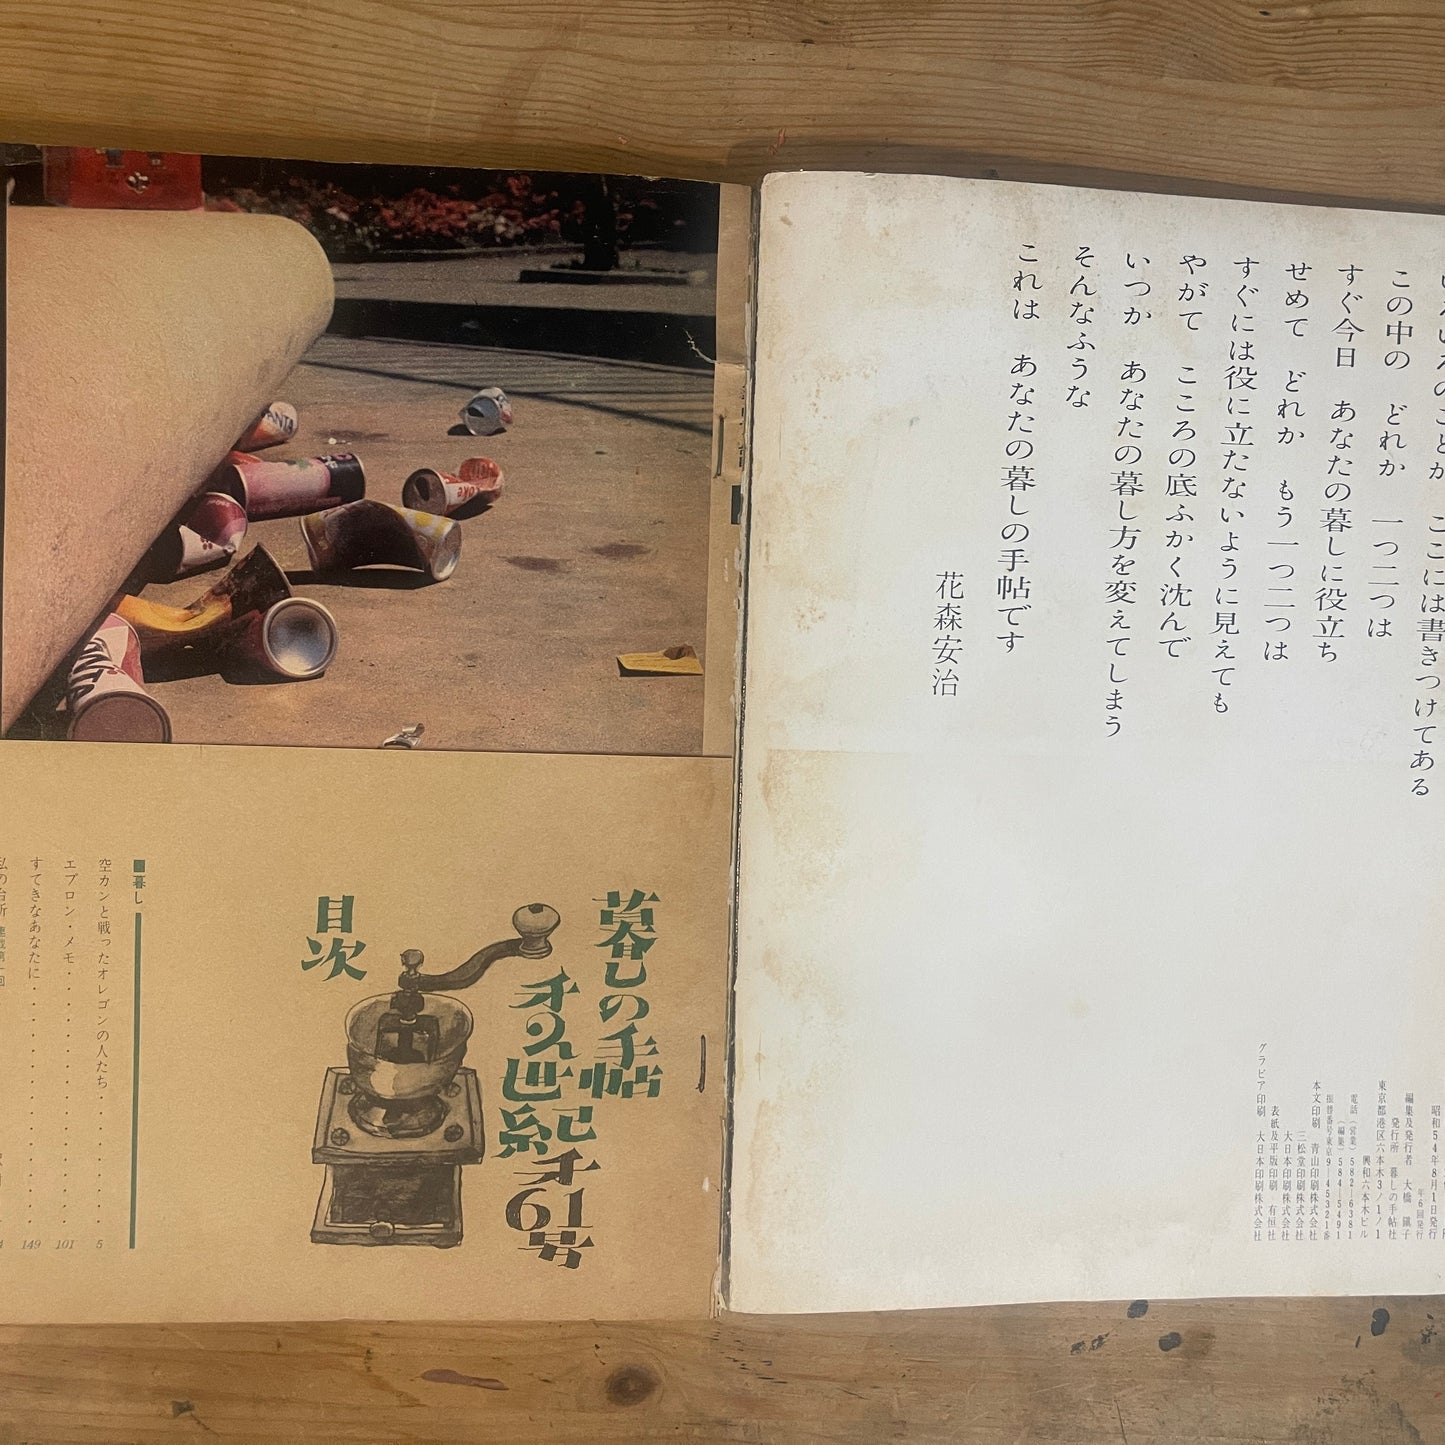 この中の　どれか　一つ二つは
すぐ今日　あなたの暮しに役立ち
せめて　どれか　もう一つ二つは
すぐには役に立たないように見えても
やがて　こころの底ふかく沈んで
いつか　あなたの暮し方を変えてしまう
そんなふうな
これは　あなたの暮しの手帖です
花森安治
昭和54年8月1日発行
年6回発行
編集及発行者　大橋　鎭子
発行所　暮しの手帖社
東京都港区六本木3ノ1ノ1
興和六本木ビル
電話（営業）582-6381
（編集）584-5491
振替番号・東京9-45321番
本文印刷　青山印刷株式会社
三松堂印刷株式会社
大日本印刷株式会社
表紙及平版印刷　有恒社
グラビア印刷　大日本印刷株式会社
暮しの手帖
才2世紀
才61号
目次
■暮し
空カンと戦ったオレゴンの人たち・・・5
エプロン・メモ・・・101
すてきなあなたに・・・149